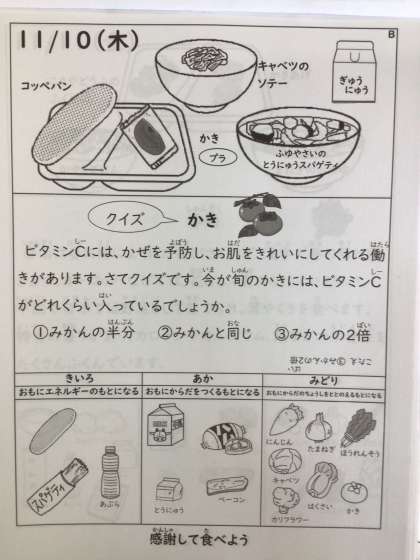 11/10(木)
B
コッペパン
キャベツの
ソテー
ぎゅう
にゅう
かき
プラ
ふゆやさいの
とうにゅうスパゲティ
クイズ
かき
ビタミンCには、かぜを予防し、お肌をきれいにしてくれる働
きがあります。さてクイズです。今が旬のかきには、ビタミンC
がどれくらい入っているでしょうか。
①みかんの半分 ②みかんと同じ ③みかんの2倍
こたえ ③みかんの2倍
きいろ
おもにエネルギーのもとになる
あか
おもにからだをつくるもとになる
みどり
おもにからだのちょうしをととのえるもとになる
スパゲティ
あぶら
とうにゅう
ベーコン
にんじん
たまねぎ
ほうれんそう
キャベツ
はくさい
かき
カリフラワー
感謝して食べよう